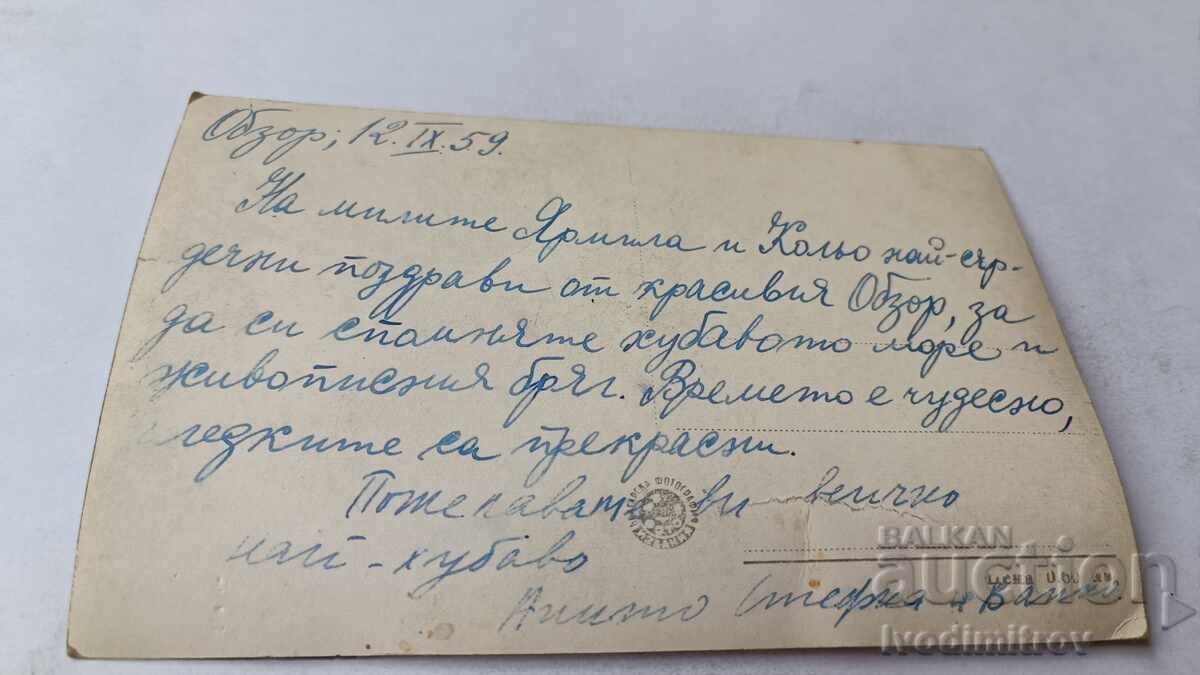 Обзор; 12.IX.59.
На милите Ярмила и Кольо най-сър-
дечни поздрави от красивия Обзор, за
да си спомняте хубавото море и
живописния бряг. Времето е чудесно,
гледките са прекрасни.
Пожелават ви всичко
най-хубаво
Стефка и
Цена 0.60 лв
BALKAN
auction
Ivodimitrov